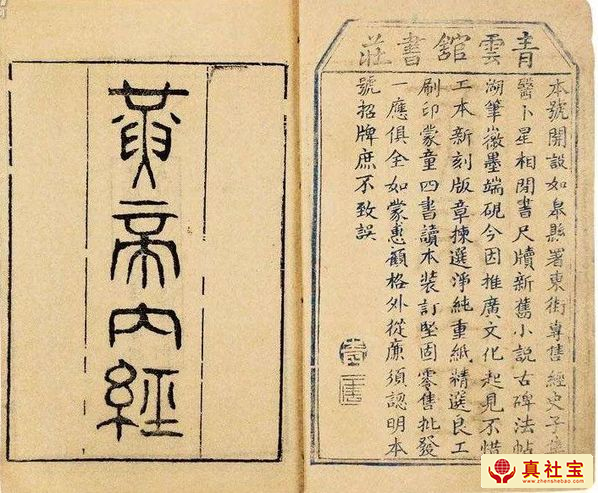 青雲舘書莊
本號開設如皋縣署東街專售經史子集
醫卜星相閒書尺牘新舊小說古碑法帖
湖筆徽墨端硯今因推廣文化起見不惜
工本新刻版章揀選淨純重紙精選良工
刷印蒙童四書讀本裝訂堅固零售批發
一應俱全如蒙惠顧格外從廉須認明本
號招牌庶不致誤
黃帝內經
真社宝
www.zhenshebao.com